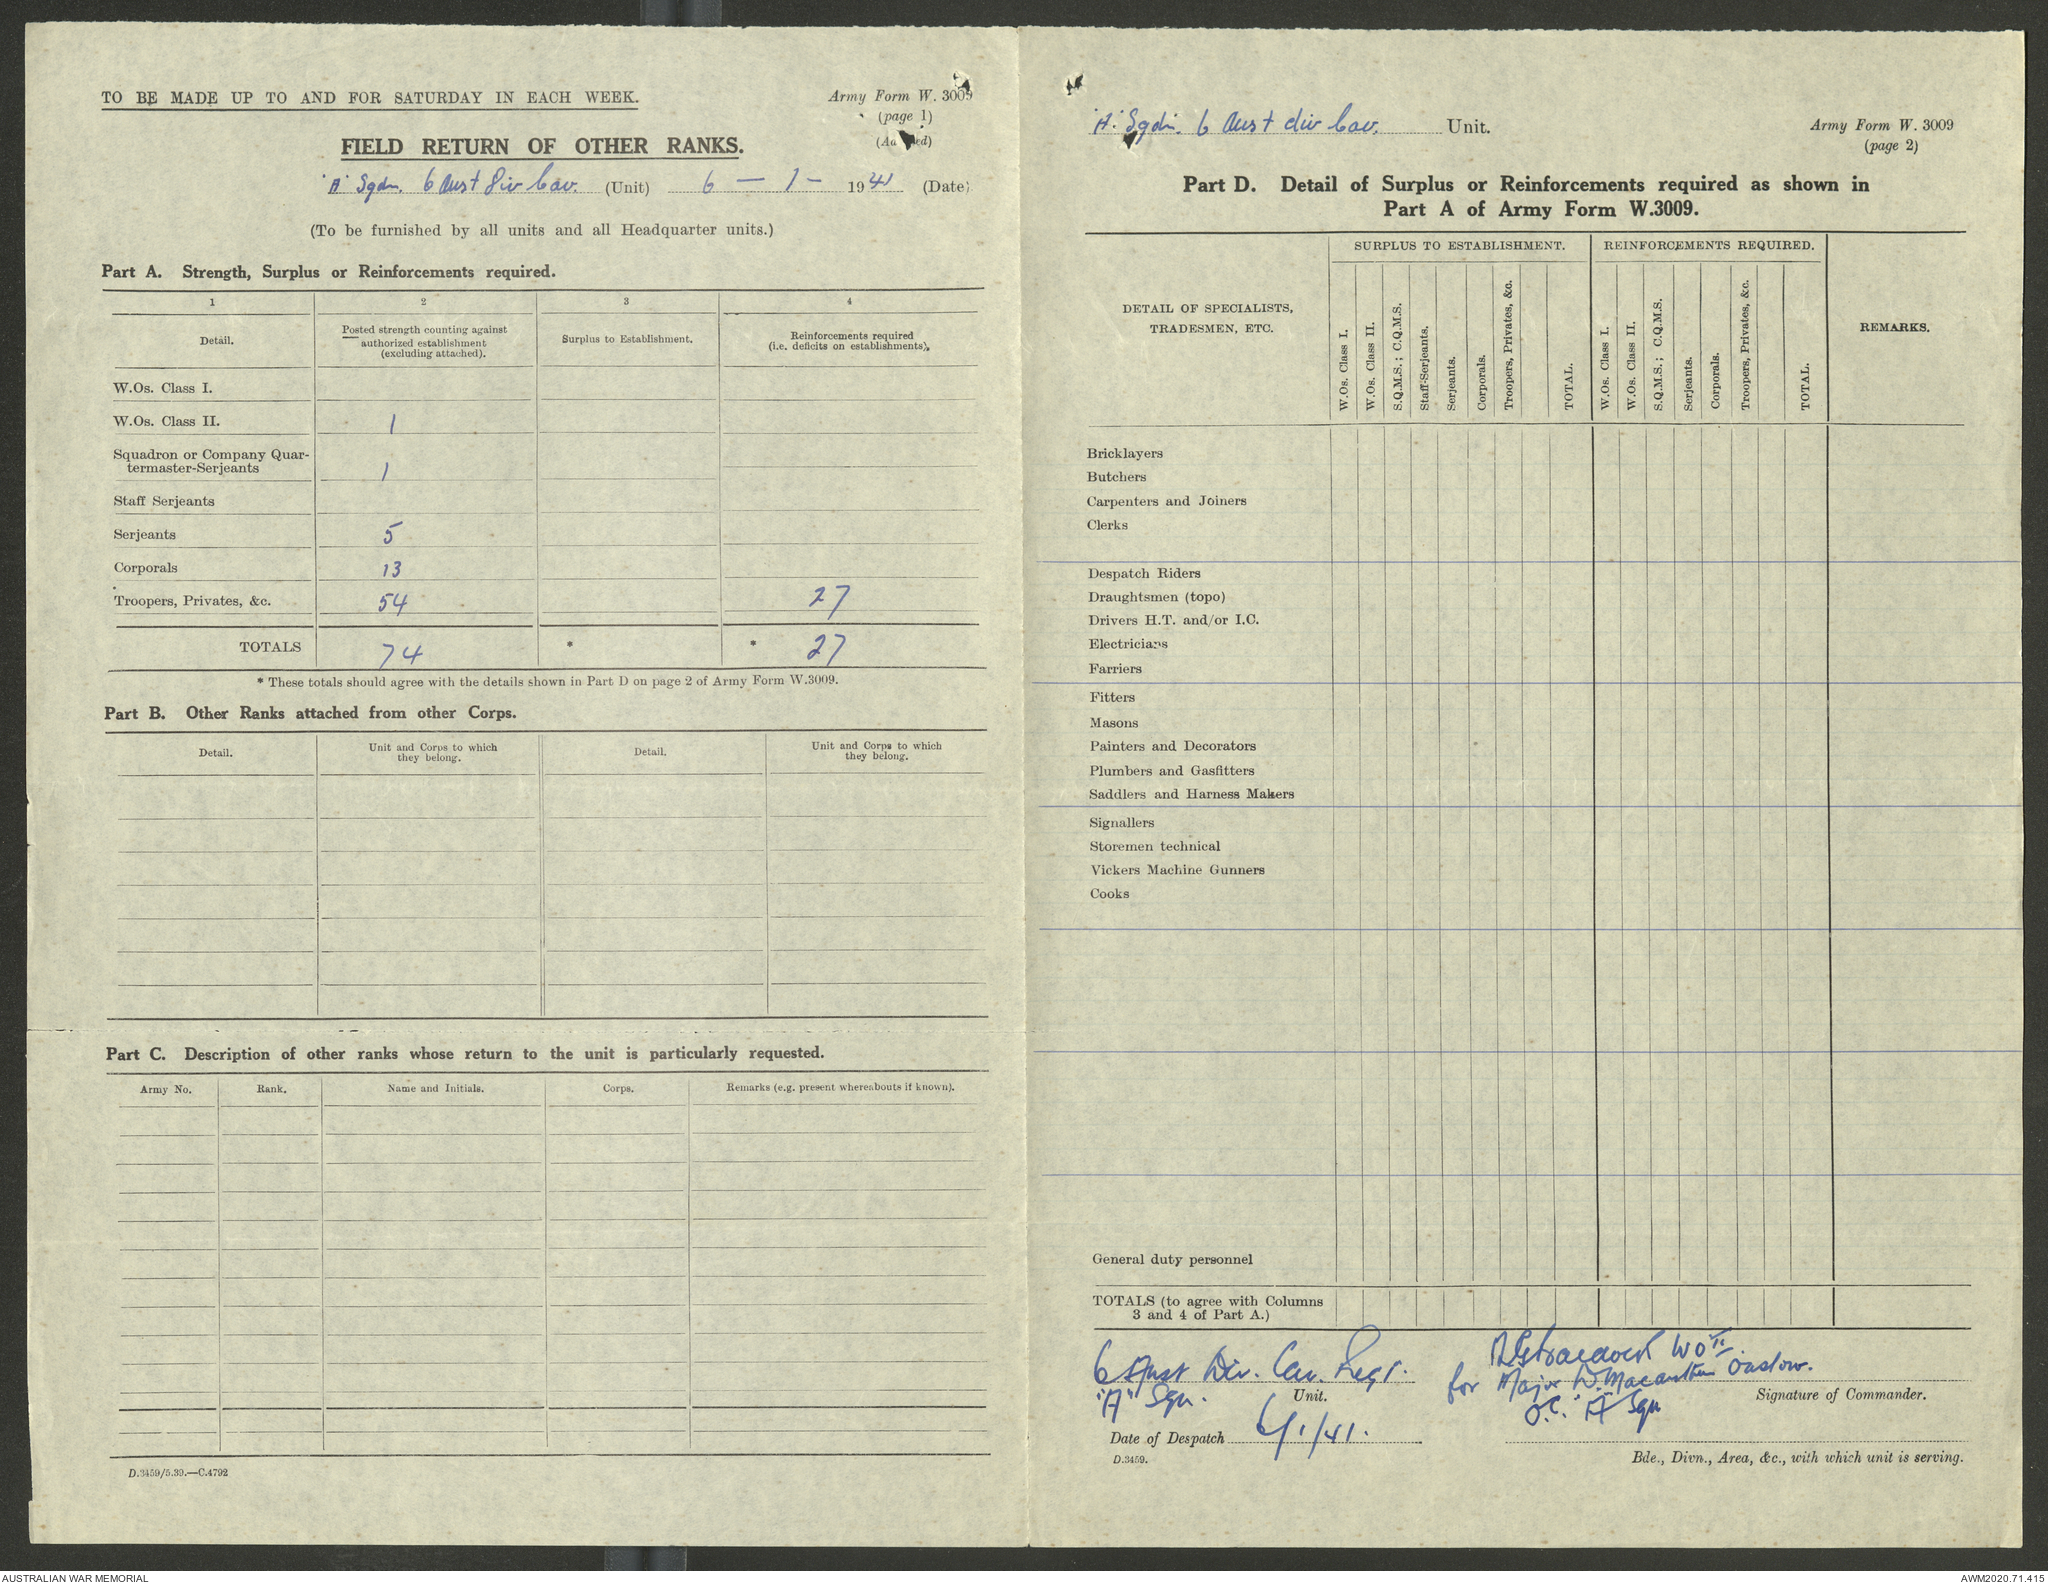 TO BE MADE UP TO AND FOR SATURDAY IN EACH WEEK.
Army Form W. 3009
(page 1)
FIELD RETURN OF OTHER RANKS.
'A' Sqdn. 6 Aust Div Cav. (Unit) 6 — 1 — 1941 (Date)
(To be furnished by all units and all Headquarter units.)
Part A. Strength, Surplus or Reinforcements required.
1 2 3 4
Detail. Posted strength counting against authorized establishment (excluding attached). Surplus to Establishment. Reinforcements required (i.e. deficits on establishments).
W.Os. Class I.
W.Os. Class II. 1
Squadron or Company Quar-
termaster-Serjeants 1
Staff Serjeants
Serjeants 5
Corporals 13
Troopers, Privates, &c. 54 27
TOTALS 74 * * 27
* These totals should agree with the details shown in Part D on page 2 of Army Form W.3009.
Part B. Other Ranks attached from other Corps.
Detail. Unit and Corps to which they belong. Detail. Unit and Corps to which they belong.
Part C. Description of other ranks whose return to the unit is particularly requested.
Army No. Rank. Name and Initials. Corps. Remarks (e.g. present whereabouts if known).
D.3459/5.39.—C.4792
'A' Sqdn. 6 Aust div Cav. Unit.
Army Form W. 3009
(page 2)
Part D. Detail of Surplus or Reinforcements required as shown in
Part A of Army Form W.3009.
SURPLUS TO ESTABLISHMENT. REINFORCEMENTS REQUIRED.
DETAIL OF SPECIALISTS,
TRADESMEN, ETC.
W.Os. Class I.
W.Os. Class II.
S.Q.M.S.; C.Q.M.S.
Staff-Serjeants.
Serjeants.
Corporals.
Troopers, Privates, &c.
TOTAL.
W.Os. Class I.
W.Os. Class II.
S.Q.M.S.; C.Q.M.S.
Serjeants.
Corporals.
Troopers, Privates, &c.
TOTAL.
REMARKS.
Bricklayers
Butchers
Carpenters and Joiners
Clerks
Despatch Riders
Draughtsmen (topo)
Drivers H.T. and/or I.C.
Electricians
Farriers
Fitters
Masons
Painters and Decorators
Plumbers and Gasfitters
Saddlers and Harness Makers
Signallers
Storemen technical
Vickers Machine Gunners
Cooks
General duty personnel
TOTALS (to agree with Columns
3 and 4 of Part A.)
6 Aust Div. Cav. Regt.
"A" Sqn. Unit.
WO II
for Major D. Macarthur Onslow.
Signature of Commander.
O.C. "A" Sqn
Date of Despatch 6/1/41.
D.3459.
Bde., Divn., Area, &c., with which unit is serving.
AUSTRALIAN WAR MEMORIAL
AWM2020.71.415